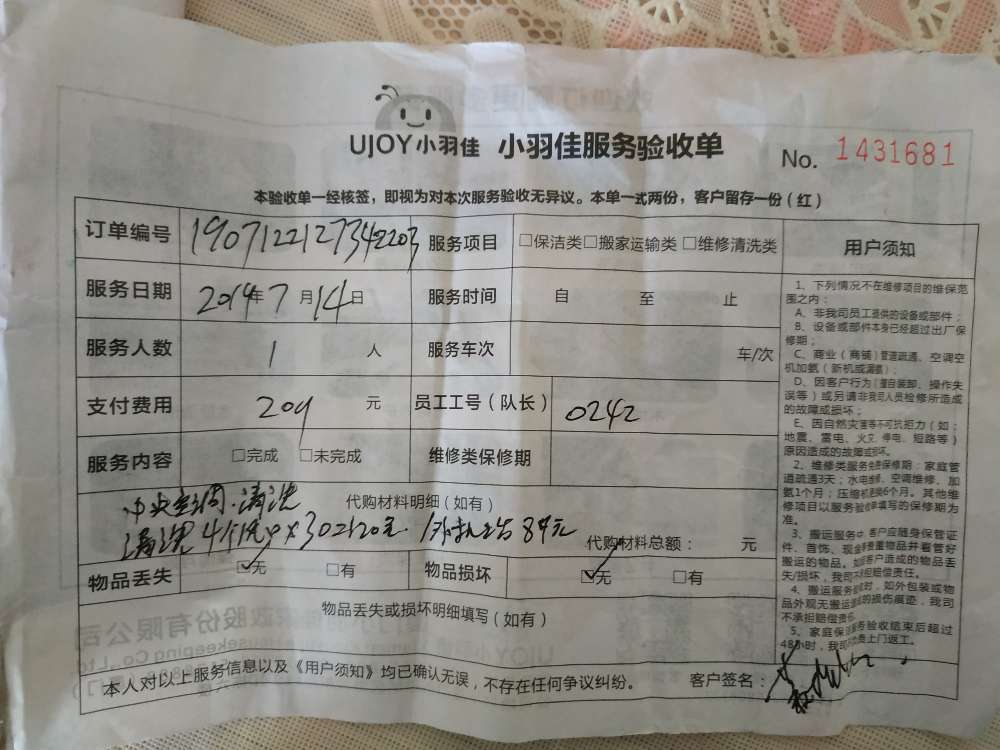 UJOY小羽佳 小羽佳服务验收单 No. 1431681
本验收单一经核签，即视为对本次服务验收无异议。本单一式两份，客户留存一份（红）
订单编号 1907122127342203 服务项目 □保洁类□搬家运输类 □维修清洗类
服务日期 2019年7月14日 服务时间 自 至 止
服务人数 1 人 服务车次 车/次
支付费用 204 元 员工工号（队长） 0242
服务内容 □完成 □未完成 维修类保修期
中央空调.清洗 代购材料明细（如有）
清洗4个风口x30=120元. 84元
代购材料总额： 元
物品丢失 ☑无 □有 物品损坏 ☑无 □有
物品丢失或损坏明细填写（如有）
本人对以上服务信息以及《用户须知》均已确认无误，不存在任何争议纠纷。 客户签名：
用户须知
1、下列情况不在维修项目的维保范
围之内：
A、非我司员工提供的设备或部件；
B、设备或部件本身已经超过出厂保
修期；
C、商业（商铺）管道疏通、空调空
机加氨（新机或漏氨）；
D、因客户行为（擅自装卸、操作失
误等）或另请非我司人员检修所造成
的故障或损坏；
E、因自然灾害等不可抗拒力（如：
地震、雷电、火灾、停电、短路等）
原因造成的故障或损坏。
2、维修类服务免费保修期：家庭管
道疏通3天；水电维修、空调维修、加
氨1个月；压缩机更换6个月。其他维
修项目以服务验收单填写的保修期为
准。
3、搬运服务中，客户应随身保管证
件、首饰、现金等贵重物品并看管好
搬运的物品。如因客户造成的物品丢
失/损坏，我司不承担赔偿责任。
4、搬运服务验收时，如外包装或物
品外观无搬运造成的损伤痕迹，我司
不承担赔偿责任。
5、家庭保洁服务验收结束后超过
48小时，我司不负责上门返工。